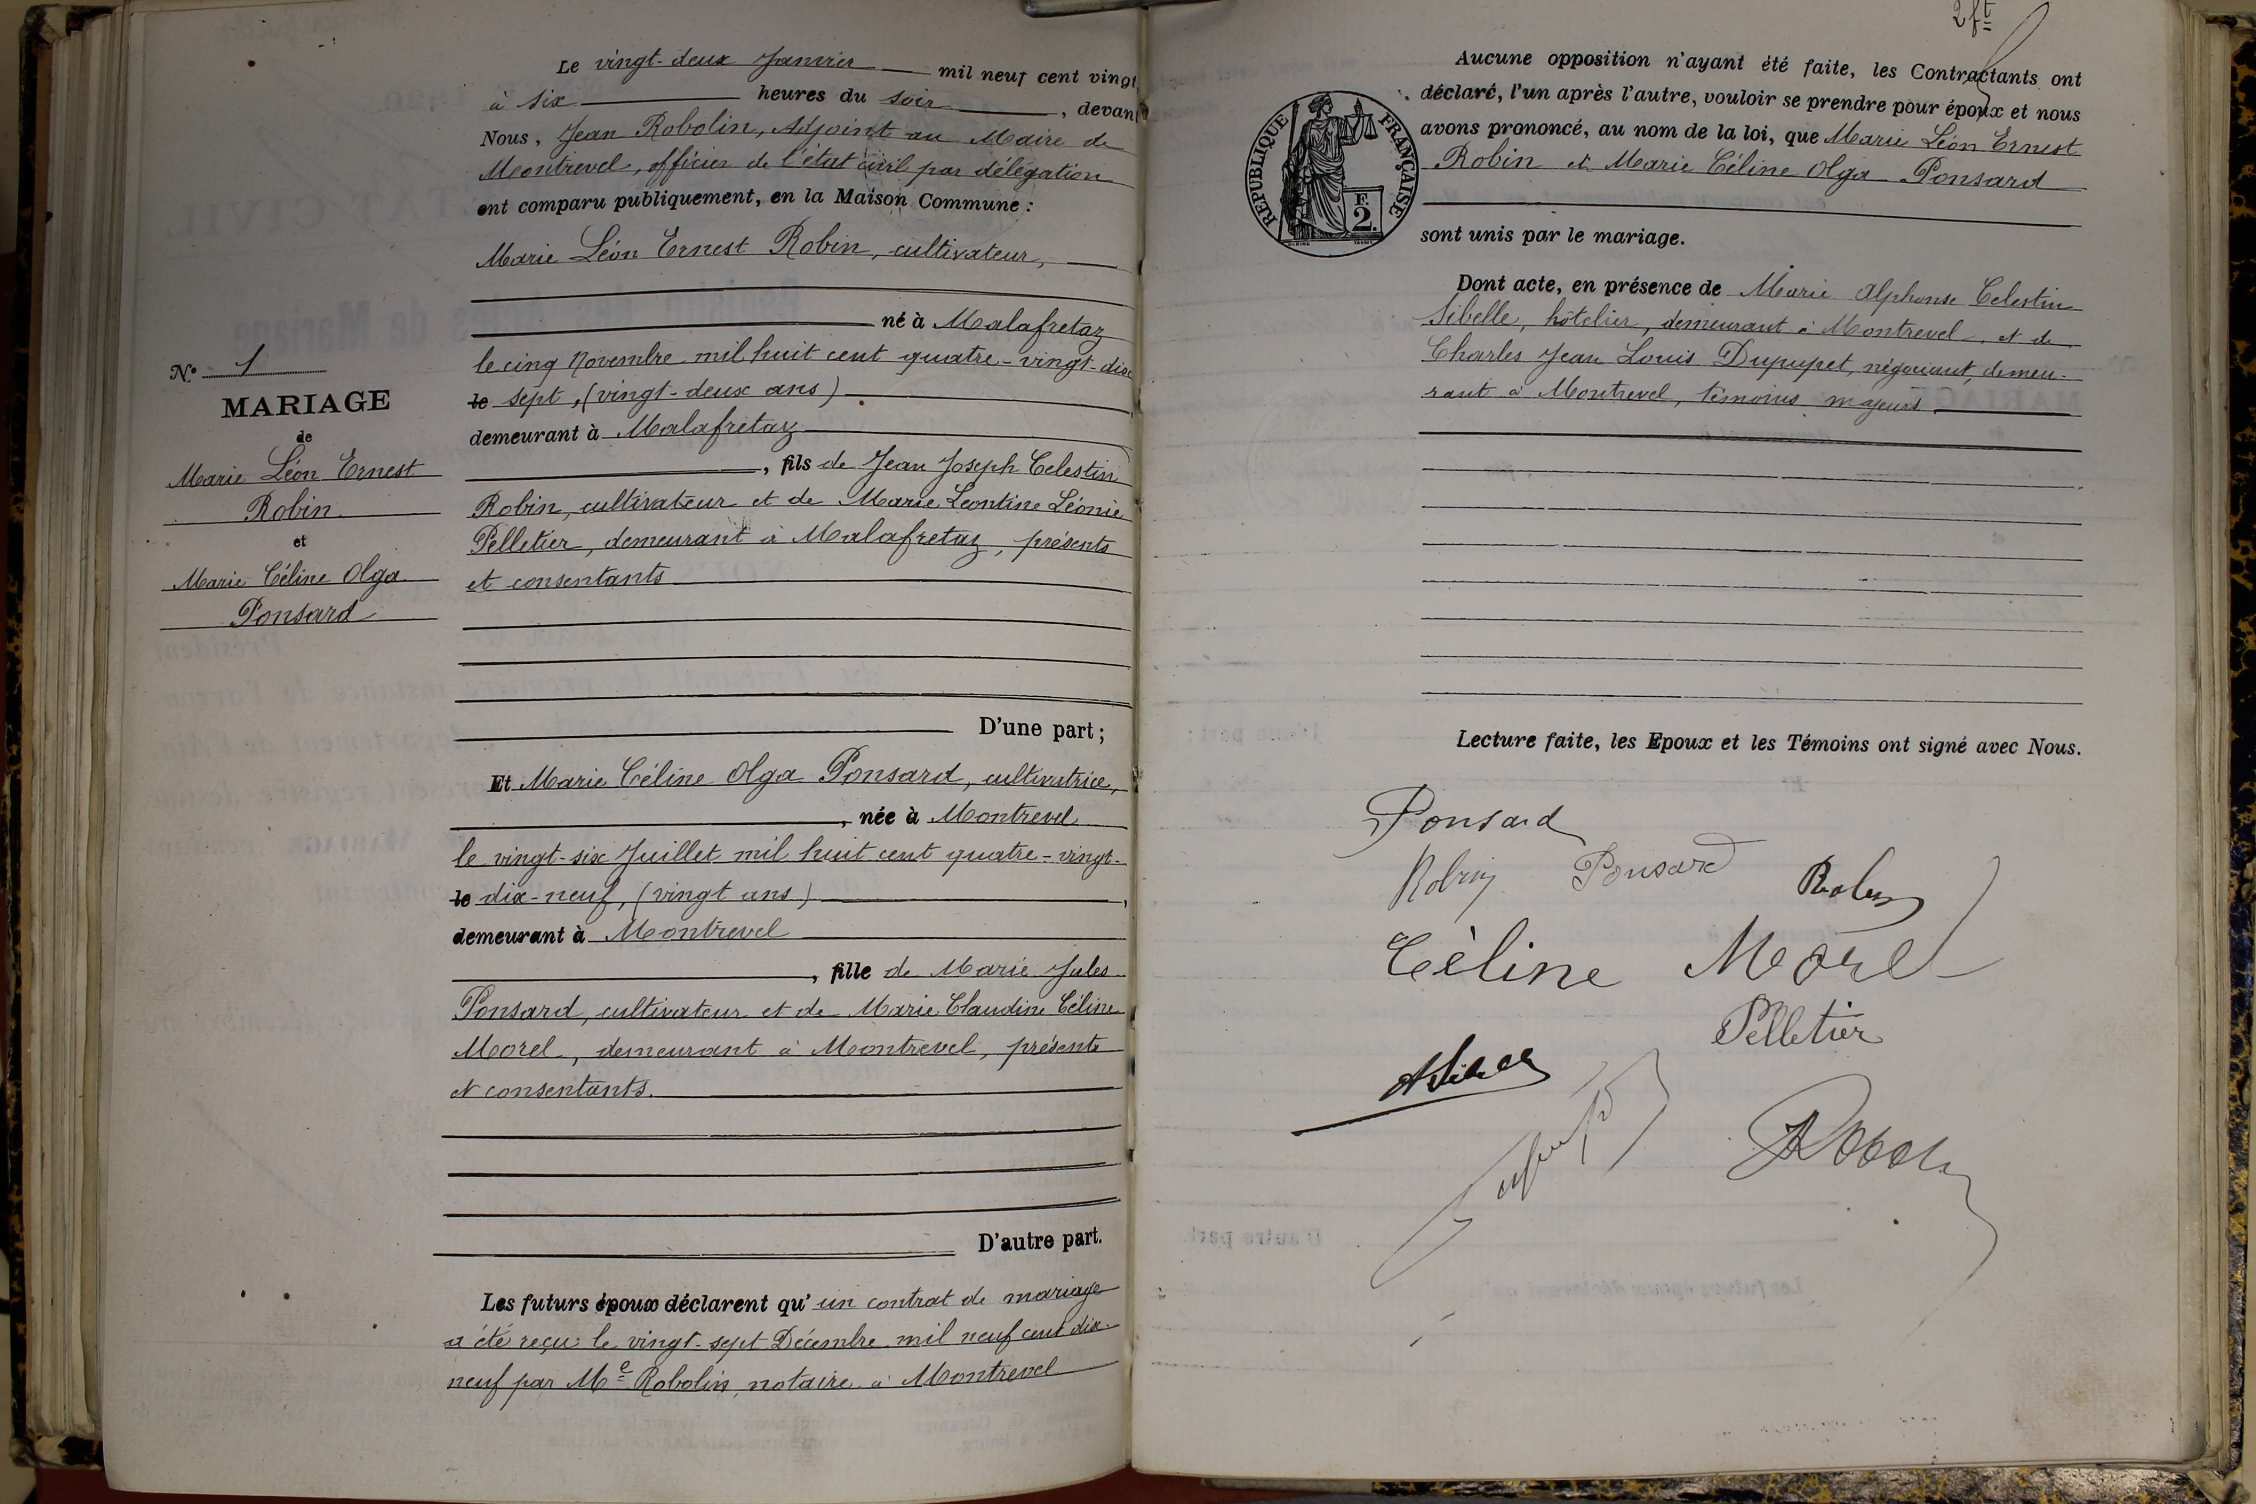 Le vingt-deux Janvier mil neuf cent vingt
à six heures du soir, devant
Nous, Jean Robolin, Adjoint au Maire de
Montrevel, officier de l'état civil par délégation
ont comparu publiquement, en la Maison Commune :
Marie Léon Ernest Robin, cultivateur,
né à Malafretaz
le cinq Novembre mil huit cent quatre-vingt-dix
le sept, (vingt-deux ans)
demeurant à Malafretaz
, fils de Jean Joseph Celestin
Robin, cultivateur et de Marie Leontine Léonie
Pelletier, demeurant à Malafretaz, présents
et consentants
D'une part ;
Et Marie Céline Olga Ponsard, cultivatrice,
, née à Montrevel
le vingt-six Juillet mil huit cent quatre-vingt-
le dix-neuf, (vingt ans),
demeurant à Montrevel
, fille de Marie Jules
Ponsard, cultivateur et de Marie Claudine Céline
Morel, demeurant à Montrevel, présents
et consentants.
D'autre part.
Les futurs époux déclarent qu'un contrat de mariage
a été reçu le vingt-sept Décembre mil neuf cent dix-
neuf par Me Robolin, notaire à Montrevel
N° 1
MARIAGE
de
Marie Léon Ernest
Robin
et
Marie Céline Olga
Ponsard
2 ft
Aucune opposition n'ayant été faite, les Contractants ont
déclaré, l'un après l'autre, vouloir se prendre pour époux et nous
avons prononcé, au nom de la loi, que Marie Léon Ernest
Robin et Marie Céline Olga Ponsard
sont unis par le mariage.
REPUBLIQUE FRANÇAISE
F. 2.
Dont acte, en présence de Marie Alphonse Celestin
Sibelle, hôtelier, demeurant à Montrevel, et de
Charles Jean Louis Dupupet, négociant, demeu-
rant à Montrevel, témoins majeurs
Lecture faite, les Epoux et les Témoins ont signé avec Nous.
Ponsard
Robin Ponsard Robin
Céline Morel
Pelletier